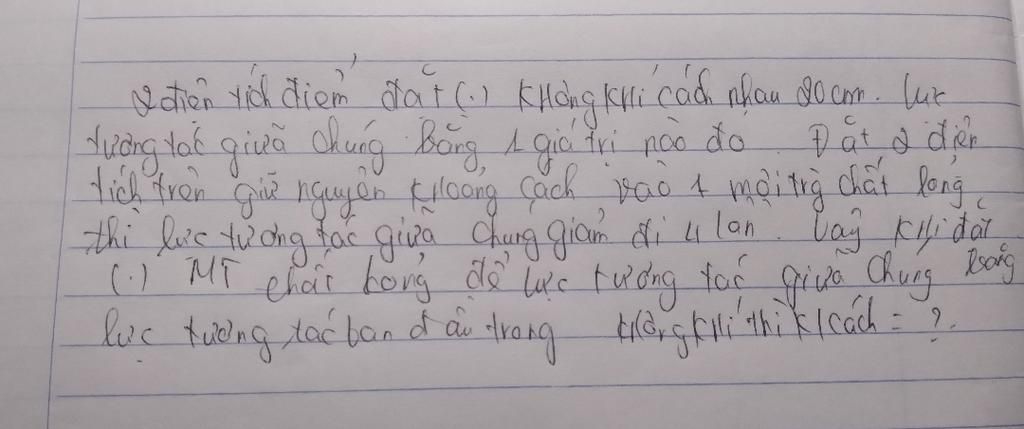 2 điện tích điểm đặt (.) không khí cách nhau 20cm. lực
tương tác giữa chúng bằng 1 giá trị nào đó. Đặt 2 điện
tích trên giữ nguyên khoảng cách vào 1 môi trg chất lỏng
thì lực tương tác giữa chúng giảm đi 4 lần. Vậy khi đặt
(.) MT chất lỏng để lực tương tác giữa chúng bằng
lực tương tác ban đầu trong không khí thì k/cách = ?.